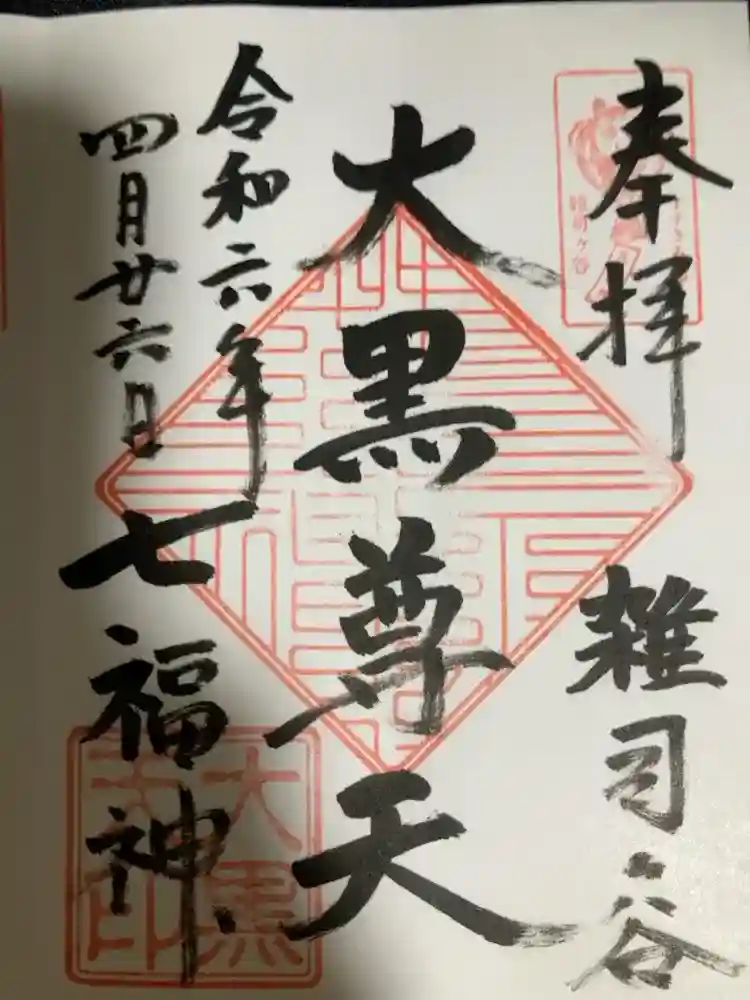 奉拝
雑司谷
大黒尊天
令和六年
四月廿六日
七福神
大黒
天印
雑司ヶ谷